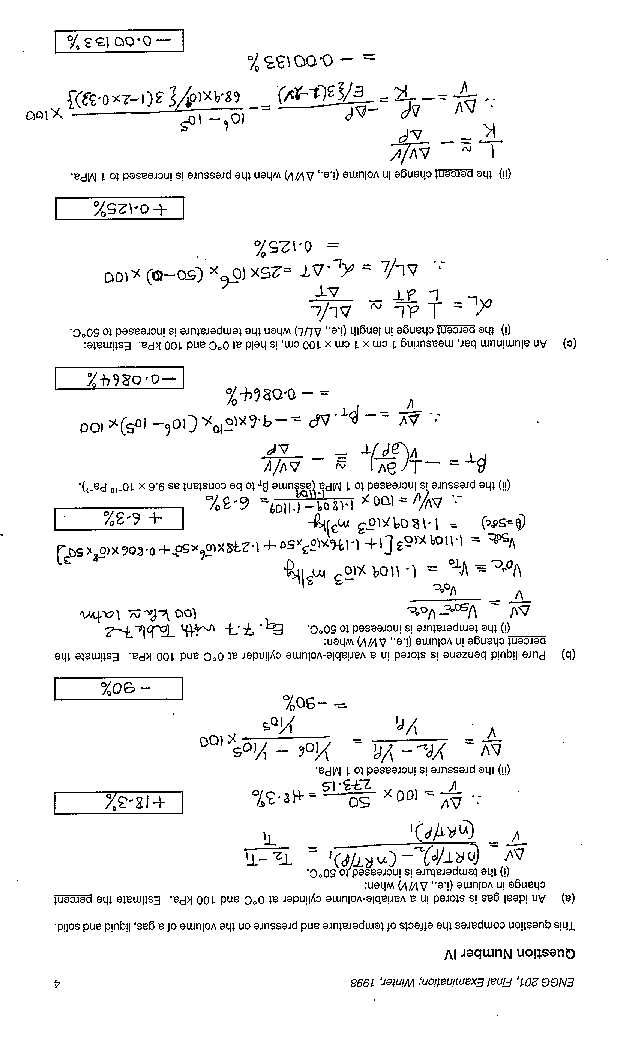 ENGG 201, Final Examination, Winter, 1998 4
Question Number IV
This question compares the effects of temperature and pressure on the volume of a gas, liquid and solid.
(a) An ideal gas is stored in a variable-volume cylinder at 0°C and 100 kPa. Estimate the percent
change in volume (i.e., ΔV/V) when:
(i) the temperature is increased to 50°C.
ΔV/V = ((nRT/P)₂ - (nRT/P)₁) / (nRT/P)₁ = (T₂ - T₁) / T₁
∴ ΔV/V = 100 × 50/273.15 = +18.3%
+18.3%
(ii) the pressure is increased to 1 MPa.
ΔV/V = (1/P₂ - 1/P₁) / (1/P₁) = (1/10⁶ - 1/10⁵) / (1/10⁵) × 100
= -90%
- 90%
(b) Pure liquid benzene is stored in a variable-volume cylinder at 0°C and 100 kPa. Estimate the
percent change in volume (i.e., ΔV/V) when:
(i) the temperature is increased to 50°C. Eq. 7.7 with Table 7-2
ΔV/V = (V50°C - V0°C) / V0°C 100 kPa ≈ 1 atm
V0°C = V₀ = 1.1109 × 10⁻³ m³/kg
V50C = 1.1109 × 10⁻³ [1 + 1.176×10⁻³×50 + 1.278×10⁻⁶×50² + 0.806×10⁻⁸×50³]
= 1.1809 × 10⁻³ m³/kg
∴ ΔV/V = 100 × (1.1809 - 1.1109) / 1.1109 = 6.3%
+ 6.3%
(ii) the pressure is increased to 1 MPa (assume βT to be constant as 9.6 × 10⁻¹⁰ Pa⁻¹).
βT = - 1/V (∂V/∂P)T ≅ - (ΔV/V) / ΔP
∴ ΔV/V = - βT · ΔP = -9.6×10⁻¹⁰ × (10⁶ - 10⁵) × 100
= - 0.0864%
-0.0864%
(c) An aluminum bar, measuring 1 cm × 1 cm × 100 cm, is held at 0°C and 100 kPa. Estimate:
(i) the percent change in length (i.e., ΔL/L) when the temperature is increased to 50°C.
αL = 1/L dL/dT ≈ (ΔL/L) / ΔT
∴ ΔL/L = αL · ΔT = 25×10⁻⁶ × (50-0) × 100
= 0.125%
+0.125%
(ii) the percent change in volume (i.e., ΔV/V) when the pressure is increased to 1 MPa.
1/K ≅ - (ΔV/V) / ΔP
∴ ΔV/V = - ΔP/K = -ΔP / (E/{3(1-2ν)}) = - (10⁶ - 10⁵) / (68.9×10⁹/{3(1-2×0.33)}) × 100
= - 0.00133%
-0.00133%